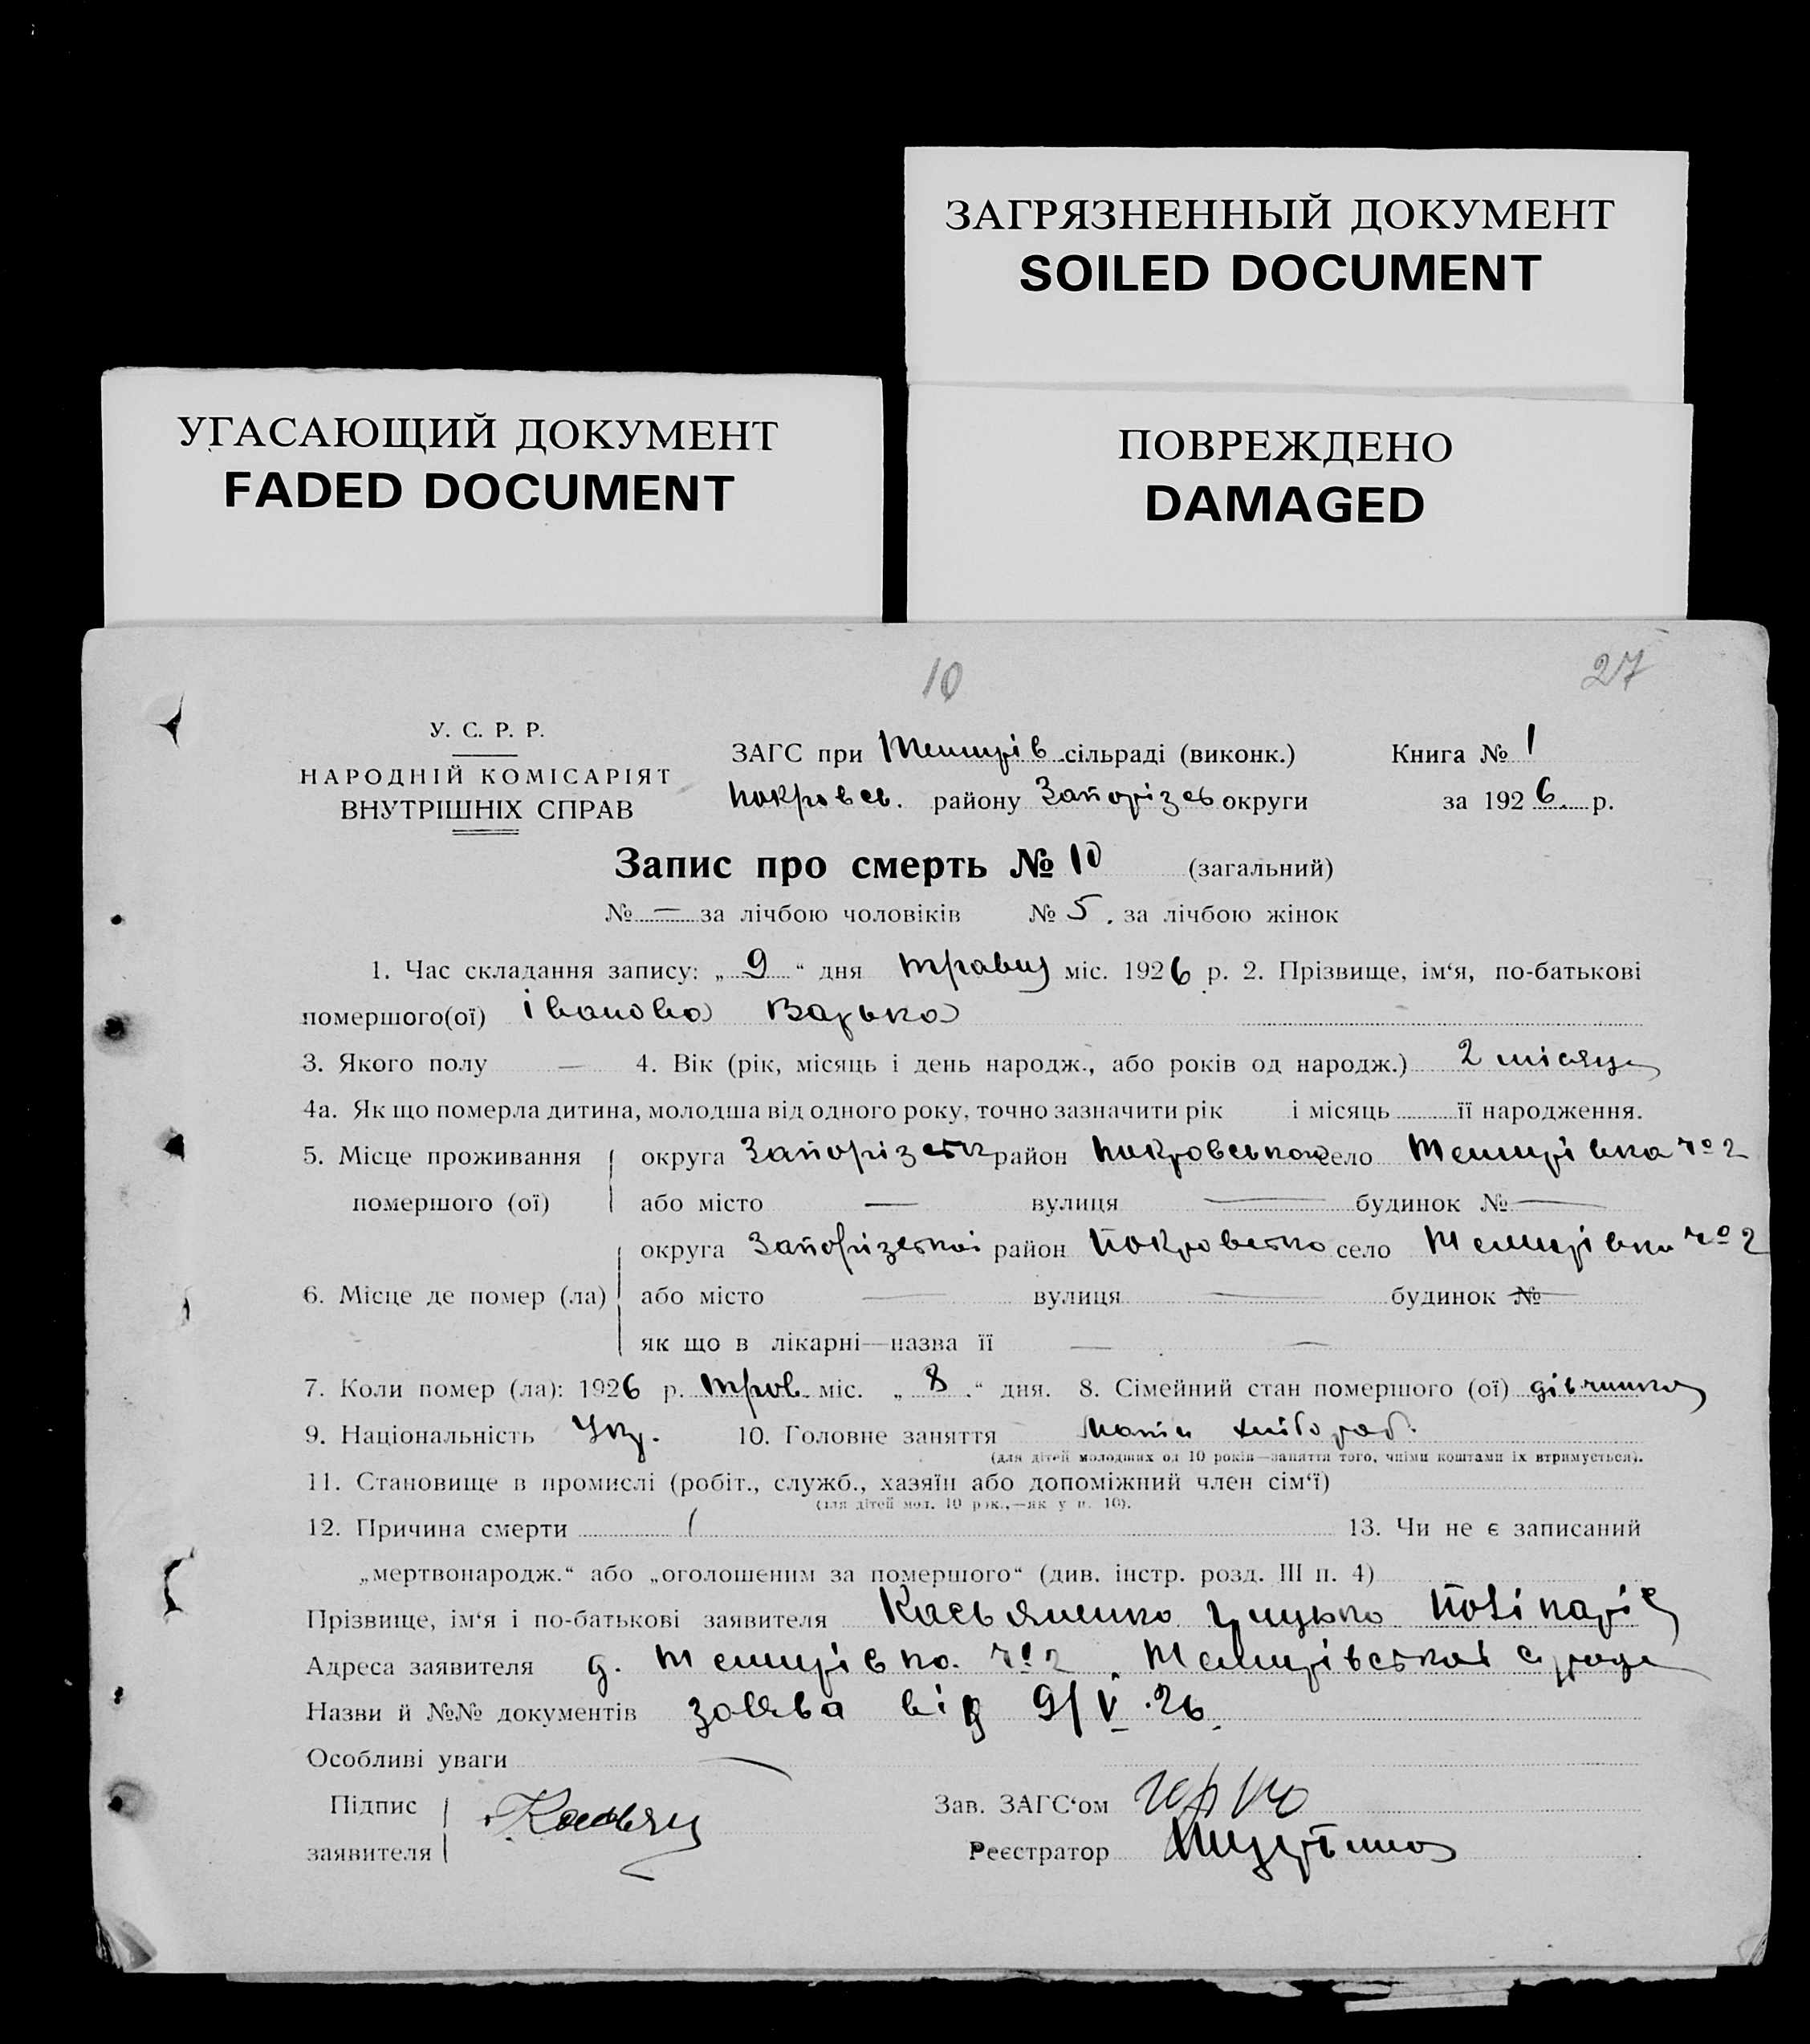 ЗАГРЯЗНЕННЫЙ ДОКУМЕНТ
SOILED DOCUMENT
УГАСАЮЩИЙ ДОКУМЕНТ
FADED DOCUMENT
ПОВРЕЖДЕНО
DAMAGED
10
27
У. С. Р. Р.
НАРОДНІЙ КОМІСАРІЯТ
ВНУТРІШНІХ СПРАВ
ЗАГС при Темирів сільраді (виконк.) Книга № 1
Покровсь. району Запорізсь округи за 1926 р.
Запис про смерть № 10 (загальний)
№ — за лічбою чоловіків № 5. за лічбою жінок
1. Час складання запису: „ 9 “ дня травня міс. 1926 р. 2. Прізвище, ім‘я, по-батькові
помершого(ої) Іванова Варька
3. Якого полу — 4. Вік (рік, місяць і день народж., або років од народж.) 2 місяця
4а. Як що померла дитина, молодша від одного року, точно зазначити рік і місяць її народження.
5. Місце проживання округа район село Темирівка № 2
помершого (ої) або місто — вулиця — будинок № —
округа Запорізської район Покровсько село Темирівка № 2
6. Місце де помер (ла) або місто — вулиця — будинок №
як що в лікарні—назва її — —
7. Коли помер (ла): 1926 р. трав. міс. „ 8 “ дня. 8. Сімейний стан помершого (ої) дівчинка
9. Національність Укр. 10. Головне заняття Мати хлібороб.
(для дітей молодших од 10 років—заняття того, чиїми коштами їх втримується).
11. Становище в промислі (робіт., служб., хазяїн або допоміжний член сім‘ї)
(для дітей мол. 10 рок.,—як у п. 10).
12. Причина смерти 13. Чи не є записаний
„мертвонародж.“ або „оголошеним за помершого“ (див. інстр. розд. III п. 4)
Прізвище, ім‘я і по-батькові заявителя Касьяненко Грицько
Адреса заявителя д. Темирівка № 2, Темирівської с/ради
Назви й №№ документів заява від 9/V.26.
Особливі уваги —
Підпис Зав. ЗАГС‘ом
заявителя Реєстратор